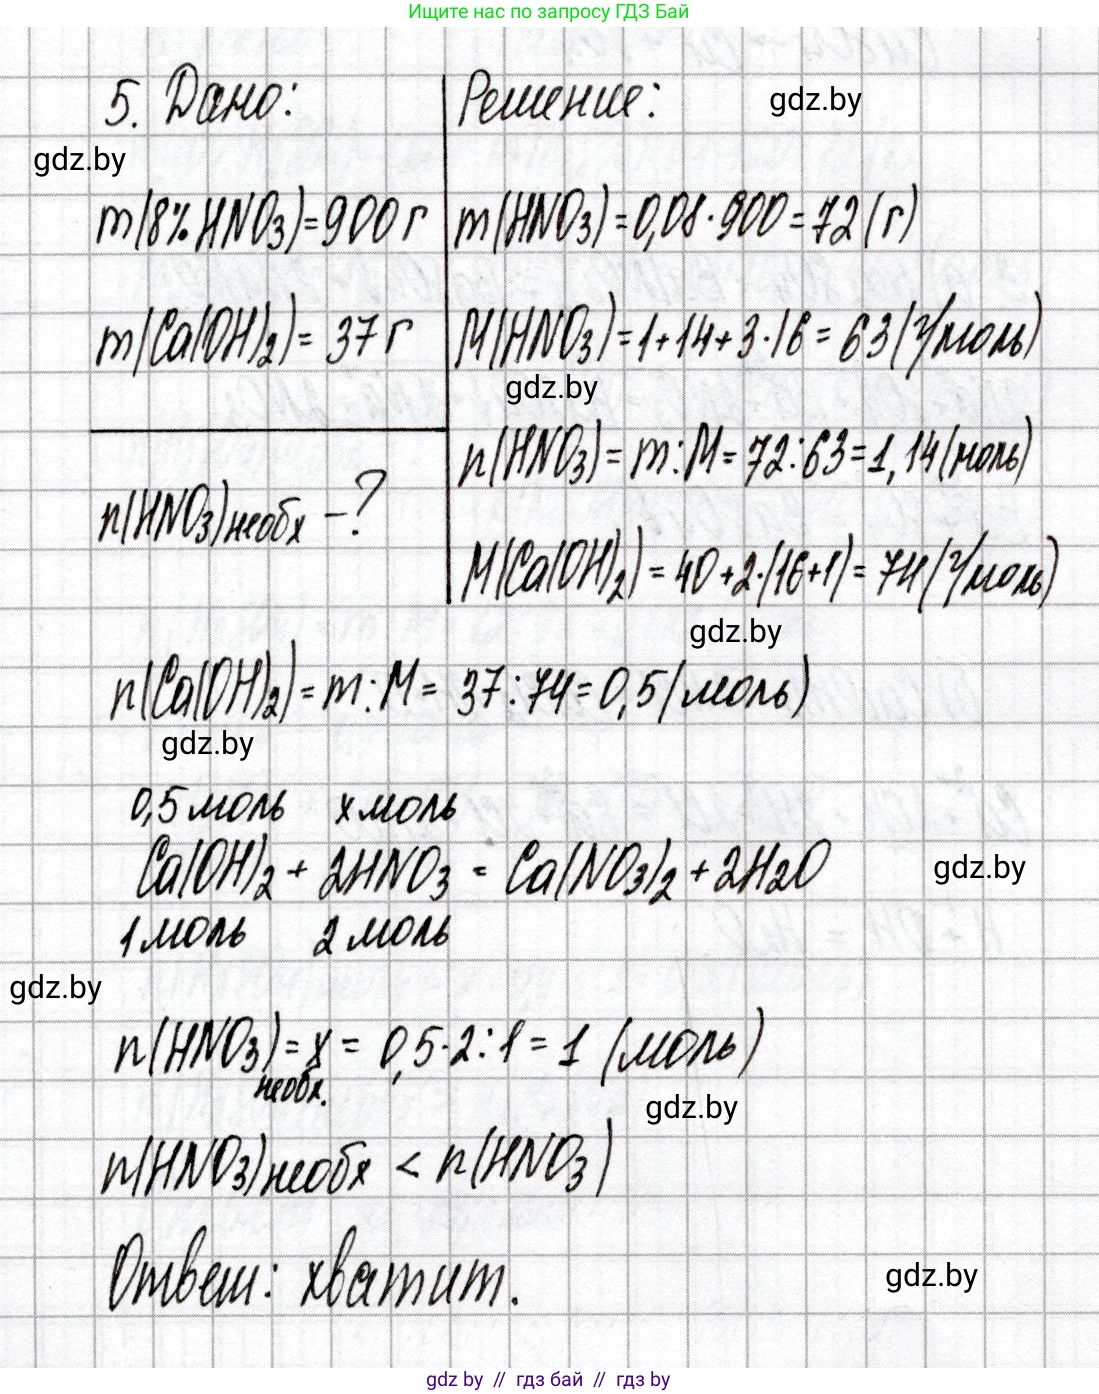 Ищите нас по запросу ГДЗ Бай
5. Дано:
Решение:
gdz.by
gdz.by
m(8% HNO₃)=900 г
m(HNO₃)=0,08·900=72(г)
m(Ca(OH)₂)= 37 г
M(HNO₃)=1+14+3·16=63(г/моль)
gdz.by
n(HNO₃)= m:M= 72:63=1,14(моль)
n(HNO₃)необх –?
M(Ca(OH)₂)=40+2·(16+1)=74(г/моль)
gdz.by
n(Ca(OH)₂)=m:M= 37:74=0,5(моль)
gdz.by
0,5 моль x моль
Ca(OH)₂+ 2HNO₃ = Ca(NO₃)₂+2H₂O
gdz.by
1 моль 2 моль
gdz.by
n(HNO₃)=x= 0,5·2:1=1 (моль)
необх.
gdz.by
n(HNO₃)необх < n(HNO₃)
Ответ: хватит.
gdz.by
gdz by // гдз бай // гдз by